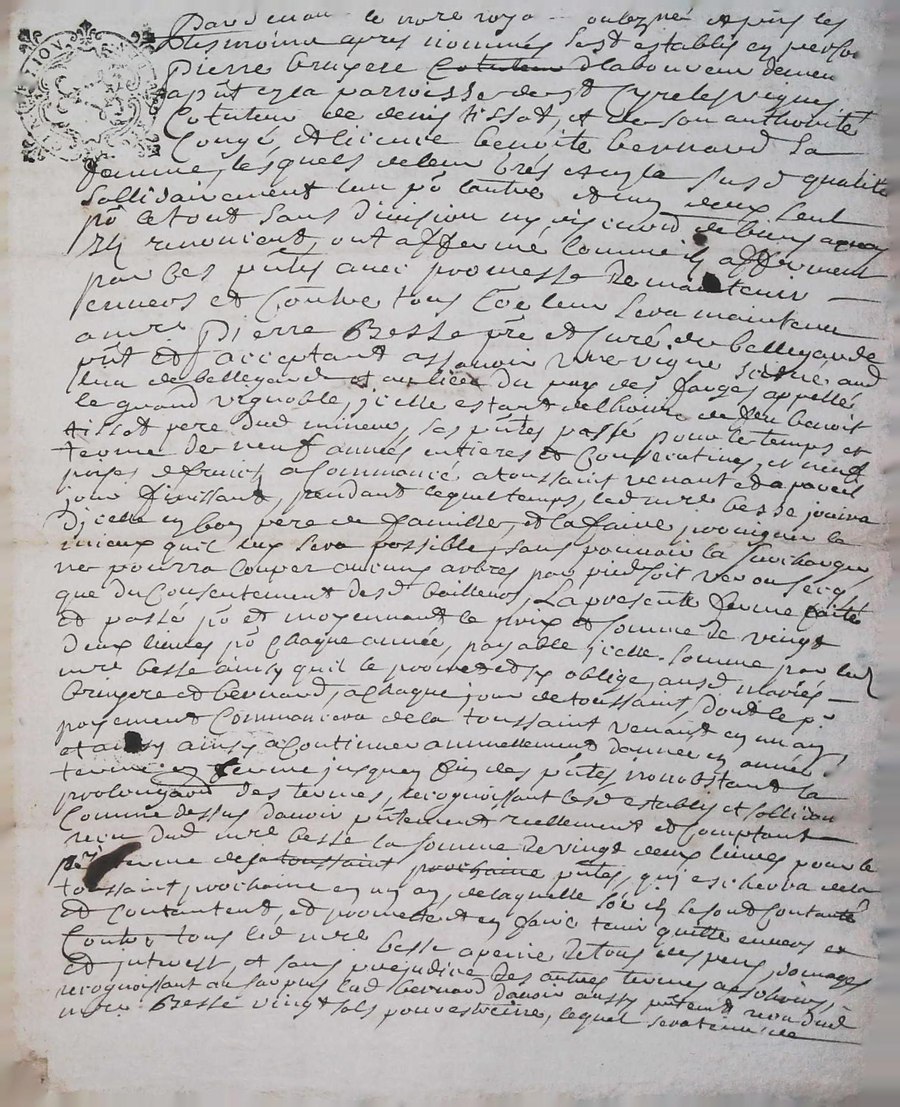 Pardevant le nore royal soubzigné et presens les
tesmoins apres nommés se st establis en personne
Pierre bruyere cotuteur et laboureur demeu
a pnt en la parroisse de st Cyr les vignes
Cotuteur de denis tissot, et de son authorité
Congé et licence benoite bernard sa
femme, lesquels de leur grés es qualité
sollidairement lun po lautre et un deux seul
po le tout sans division ny discution de biens a quoy
ils renoncent, ont affermé comme ils afferment
par ces pntes avec promesse de maintenir
envers et Contre tous
a mre Pierre Besse pre et curé de bellegarde
pnt et acceptant assavoir une vigne scituée aud
lieu de bellegarde et au lieu du pay des farges appellée
le grand vignoble, icelle estant de lhoirie de feu benoit
tissot pere dud mineur, les pntes passé pour le temps et
terme de neuf années entieres et Consecutives, et neuf
prises de fruict, a Commancé a toussaint venant et a pareil
jour finissant, pendant lequel temps, led mre besse jouira
dicelle en bon pere de famille, et la faire provigner le
mieux quil luy sera possible, sans pouvoir la surcharger
ne pourra Couper aucuns arbres par pied soit verd ou secq
que du Consentement desd bailleurs, La presente ferme faite
et passé po et moyennant le prix et somme de vingt
deux livres po Chaque année, payable icelle somme par led
mre besse ainsy quil le promet et sy oblige, ausd mariés
bruyere et bernard, a chaque jour de toussaint, dont le pr
payement Commancera de la toussaint venant en un an
et ainsy a Continuer annuellement dannée en année
terme en terme jusques fin des pntes, nonobstant la
prolongaon des termes, recognoissant lesd establis et sollidai
Comme dessus davoir pntement reellement et Comptant
receu dud mre besse la somme de vingt deux livres pour le
pr terme de sa toussaint prochaine pntes, qui escherra de la
toussaint prochaine en un an, de laquelle ils se sont Contanté
et Contantent et promettent en faire tenir quitte envers et
Contre tous led mre besse a peine de tous despens, domages
et interest, et sans prejudice des autres termes a eschoir,
recognoissant au surplus led bernard davoir aussy pntement receu dud
mre Besse vingt sols pour estreine, lequel sera tenu de